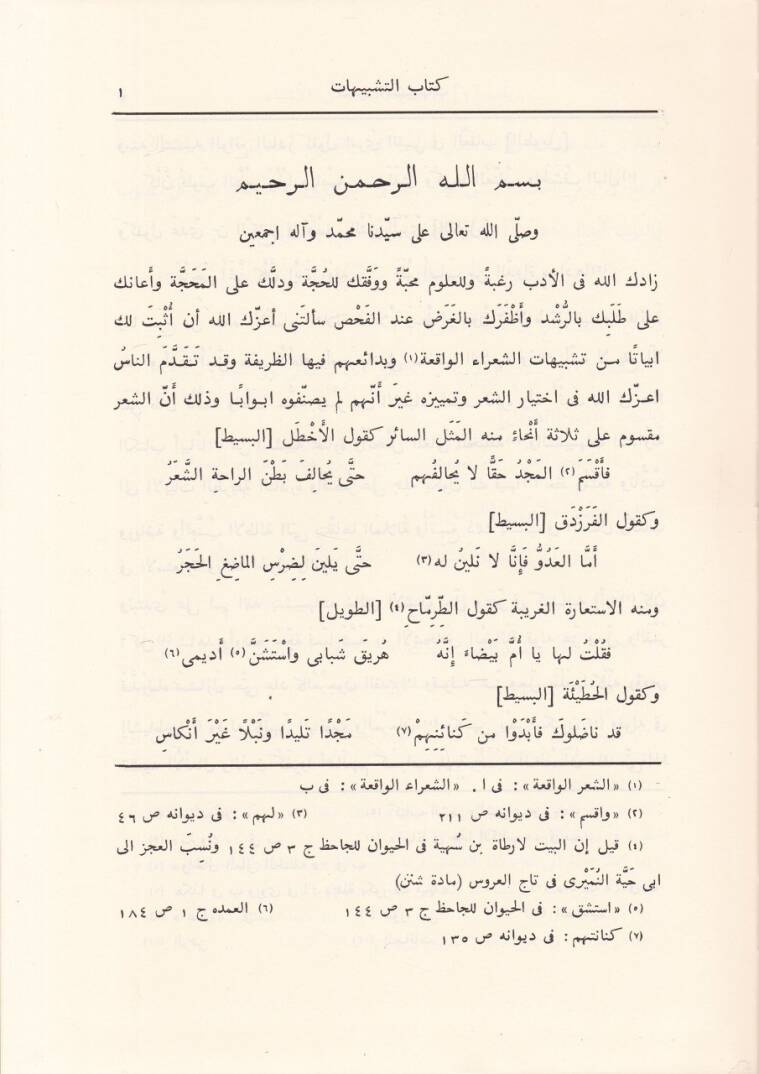 كتاب التشبيهات ١
بسم الله الرحمن الرحيم
وصلّى الله تعالى على سيّدنا محمّد وآله اجمعين
زادك الله فى الأدب رغبةً وللعلوم محبّةً ووَفَّقك للحُجَّة ودلَّك على المَحَجَّة وأعانك
على طَلَبِك بالرُّشد وأظْفَرَك بالغَرَض عند الفَحْص سألتَنى أعزّك الله أن أُثْبِتَ لك
ابياتًا من تشبيهات الشعراء الواقعة(١) وبدائعهم فيها الظريفة وقد تَقَدَّمَ الناسُ
اعزّك الله فى اختيار الشعر وتمييزه غيرَ أنّهم لم يصنّفوه ابوابًا وذلك أنّ الشعر
مقسوم على ثلاثة أنْحاءُ منه المَثَل السائر كقول الأَخْطَل [البسيط]
فأَقْسَمَ(٢) المَجْدُ حَقًّا لا يُحالِفُهم حتَّى يُحالِفَ بَطْنَ الراحةِ الشَّعَرُ
وكقول الفَرَزدَق [البسيط]
أمَّا العَدُوُّ فَإِنَّا لا نَلينُ له(٣) حتَّى يَلينَ لِضِرْسِ الماضِغِ الحَجَرُ
ومنه الاستعارة الغريبة كقول الطِّرِمّاح(٤) [الطويل]
فقُلْتُ لها يا أُمَّ بَيْضاءَ إنَّهُ هُريقَ شَبابى واسْتَشَنَّ(٥) أديمى(٦)
وكقول الحُطَيْئَة [البسيط]
قد ناضَلوكَ فأَبْدَوْا من كَنائِنِهِمْ(٧) مَجْدًا تَليدًا ونَبْلًا غَيْرَ أنْكاسِ
(١) «الشعر الواقعة»: فى ا. «الشعراء الواقعة»: فى ب
(٢) «واقسم»: فى ديوانه ص ٢١١ (٣) «لهم»: فى ديوانه ص ٤٦
(٤) قيل إن البيت لارطاة بن سُهية فى الحيوان للجاحظ ج ٣ ص ١٤٤ ونُسِبَ العجز الى
ابى حَيَّة النُمَيْرى فى تاج العروس (مادة شنن)
(٥) «استشق»: فى الحيوان للجاحظ ج ٣ ص ١٤٤ (٦) العمده ج ١ ص ١٨٤
(٧) كنانتهم: فى ديوانه ص ١٣٥